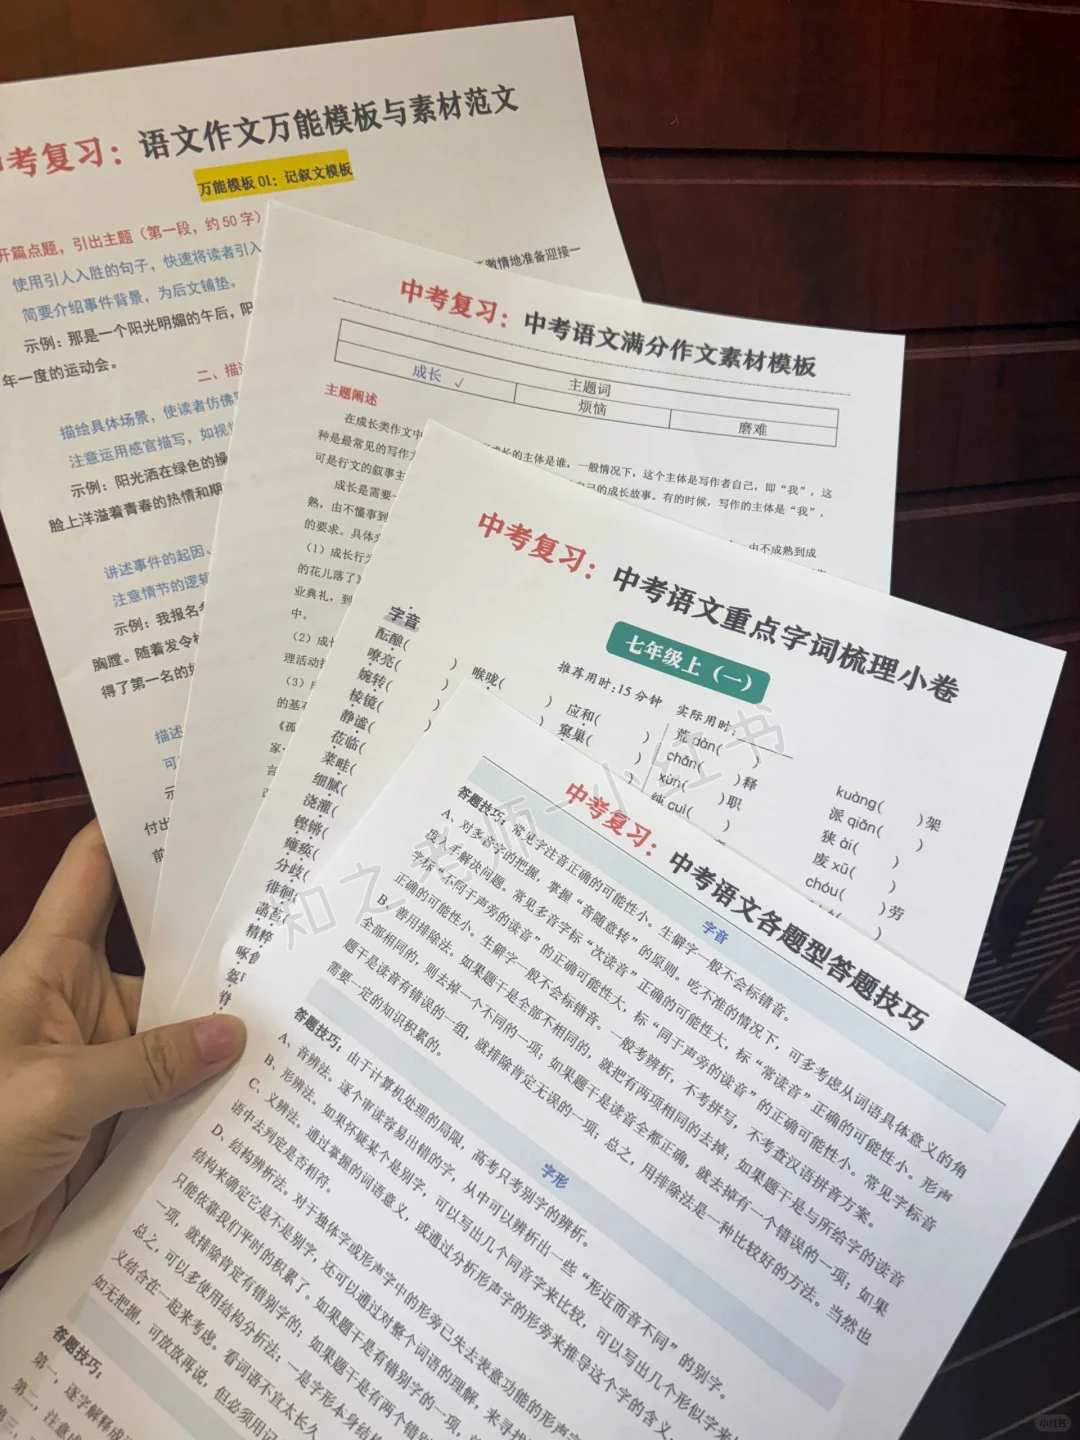 考复习：语文作文万能模板与素材范文
万能模板 01：记叙文模板
开篇点题，引出主题（第一段，约 50 字）
使用引人入胜的句子，快速将读者引入
激情地准备迎接一
简要介绍事件背景，为后文铺垫。
示例：那是一个阳光明媚的午后，阳
年一度的运动会。
二、描
描绘具体场景，使读者仿佛
注意运用感官描写，如视
示例：阳光洒在绿色的操
脸上洋溢着青春的热情和期
讲述事件的起因、
注意情节的逻辑
示例：我报名
胸膛。随着发令
得了第一名的
描述
可
付出
前
中考复习：中考语文满分作文素材模板
主题词
成长 ✓
烦恼
磨难
主题阐述
在成长类作文中
成长的主体是谁，一般情况下，这个主体是写作者自己，即“我”，这
种是最常见的写作
自己的成长故事。有的时候，写作的主体是“我”，
可是行文的叙事主
成长是需要一
由不成熟到成
熟，由不懂事到
的要求。具体
（1）成长行
的花儿落了》
业典礼，到
中。
（2）成
理活动
（3）
的基
《孤
家
言
中考复习：中考语文重点字词梳理小卷
七年级上（一）
推荐用时：15 分钟 实际用时：
字音
酝酿(
)
喉咙(
)
应和(
)
荒 dàn(
)
kuàng(
)架
嘹亮(
)
窠巢(
)
chǎn(
)释
派 qiǎn(
)
婉转(
)
xùn(
)职
狭 ài(
)
棱镜(
)
纯 cuì(
)
废 xū(
)
静谧(
chóu(
)劳
莅临(
菜畦(
细腻(
浇灌(
铿锵(
瘫痪(
分歧(
徘徊(
菡萏(
精粹
啄
中考复习：中考语文各题型答题技巧
字音
答题技巧：常见字注音正确的可能性小。生僻字一般不会标错音。
A、对多音字的把握，掌握“音随意转”的原则。吃不准的情况下，可多考虑从词语具体意义的角
度入手解决问题。常见多音字标“次读音”正确的可能性大，标“常读音”正确的可能性小。形声
字标“不同于声旁的读音”的正确可能性大，标“同于声旁的读音”的正确可能性小。常见字标音
正确的可能性小。生僻字一般不会标错音。一般考辨析，不考拼写，不考查汉语拼音方案。
B、善用排除法。如果题干是全部不相同的，就把有两项相同的去掉；如果题干是与所给字的读音
全部相同的，则去掉一个不同的一项；如果题干是读音全都正确，就去掉有一个错误的一项；如果
题干是读音有错误的一组，就排除肯定无误的一项；总之，用排除法是一种比较好的方法。当然也
需要一定的知识积累的。
字形
答题技巧：由于计算机处理的局限，高考只考别字的辨析。
A、音辨法。逐个审读容易出错的字，从中可以辨析出一些“形近而音不同”的别字。
B、形辨法。如果怀疑某个是别字，可以写出几个同音字来比较，可以写出几个形似字来
C、义辨法。通过掌握的词语意义，或通过分析形声字的形旁来推导这个字的含义，
语中去判定是否相符。
D、结构辨析法。对于独体字或形声字中的形旁已失去表意功能的形声
结构来确定它是不是别字，还可以通过对整个词语的理解，来寻找
只能依靠我们平时的积累了。如果题干是有错别字的一项，
一项，就排除肯定有错别字的；如果题干是有两个错别
总之，可以多使用结构分析法：一是字形本身结
义结合在一起来考虑。看词语不宜太长久
如无把握，可放放再说，但必须用
答题技巧：
第一，逐字解释成
第二，注意
第三
知之老师—小红书
小红书